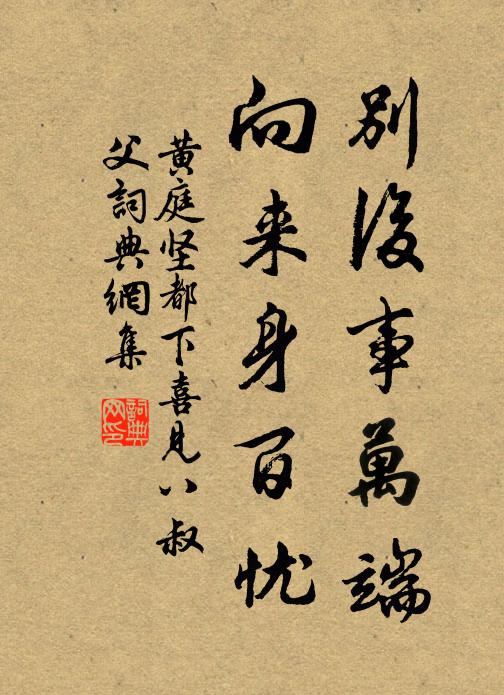 別後事萬端
向来身百忧
黄庭坚都下喜見八叔
父詞典網集
詞典
网印